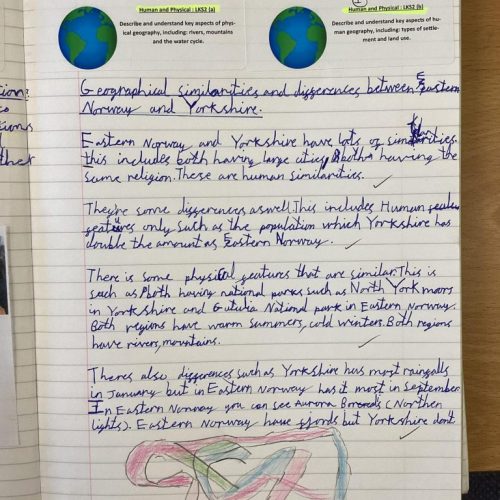 Human and Physical : LKS2 (a)
Describe and understand key aspects of phys-
ical geography, including: rivers, mountains
and the water cycle.
Human and Physical : LKS2 (b)
Describe and understand key aspects of hu-
man geography, including: types of settle-
ment and land use.
Geographical similarities and differences between Eastern
Norway and Yorkshire.
Eastern Norway and Yorkshire have lots of similarities.
this includes both having large cities, both having the
same religion. These are human similarities.
They're some differences aswell. This includes Human
features only such as the population which Yorkshire has
double the amount as Eastern Norway.
There is some physical features that are similar. This is
such as both having national parks such as North York moors
in Yorkshire and National park in Eastern Norway.
Both regions have warm summers, cold winters. Both regions
have rivers, mountains.
Theres also differences such as Yorkshire has most rainfalls
in January but in Eastern Norway has it most in September
In Eastern Norway you can see Aurora (Northen
lights). Eastern Norway have fjords but Yorkshire don't